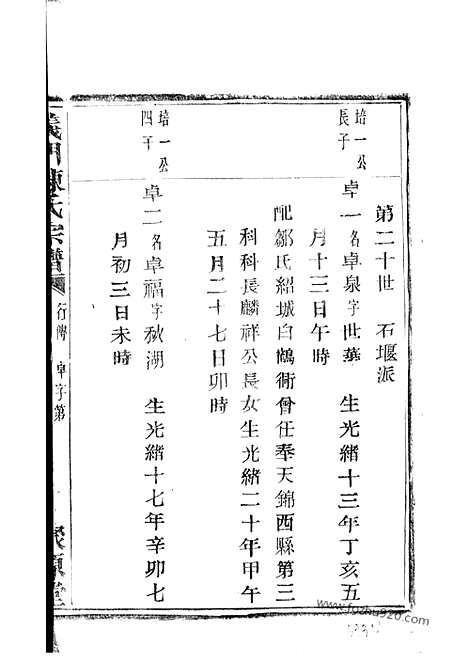 第二十世 石堰派
培一公
長子
卓一名卓泉字世華 生光緒十三年丁亥五
月十三日午時
配鄒氏紹城白鶴衖曾任奉天錦西縣第三
科科長麟祥公長女生光緒二十年甲午
五月二十七日卯時
培一公
四子
卓二名卓福字秋湖 生光緒十七年辛卯七
月初三日未時
義門陳氏宗譜 行傳 卓字第
聚原堂